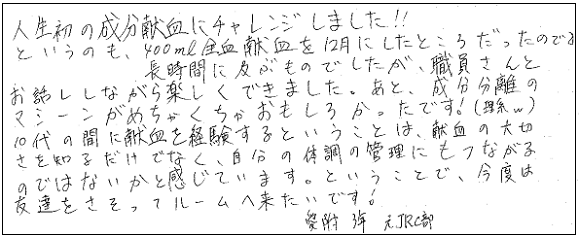 人生初の成分献血にチャレンジしました!!
というのも、400ml全血献血を12月にしたところだったのでる
長時間に及ぶものでしたが、職員さんと
お話ししながら楽しくできました。あと、成分分離の
マシーンがめちゃくちゃおもしろかったです!(理系w)
10代の間に献血を経験するということは、献血の大切
さを知るだけでなく、自分の体調の管理にもつながる
のではないかと感じています。ということで、今度は
友達をさそってルームへ来たいです!
愛附 3年 元JRC部